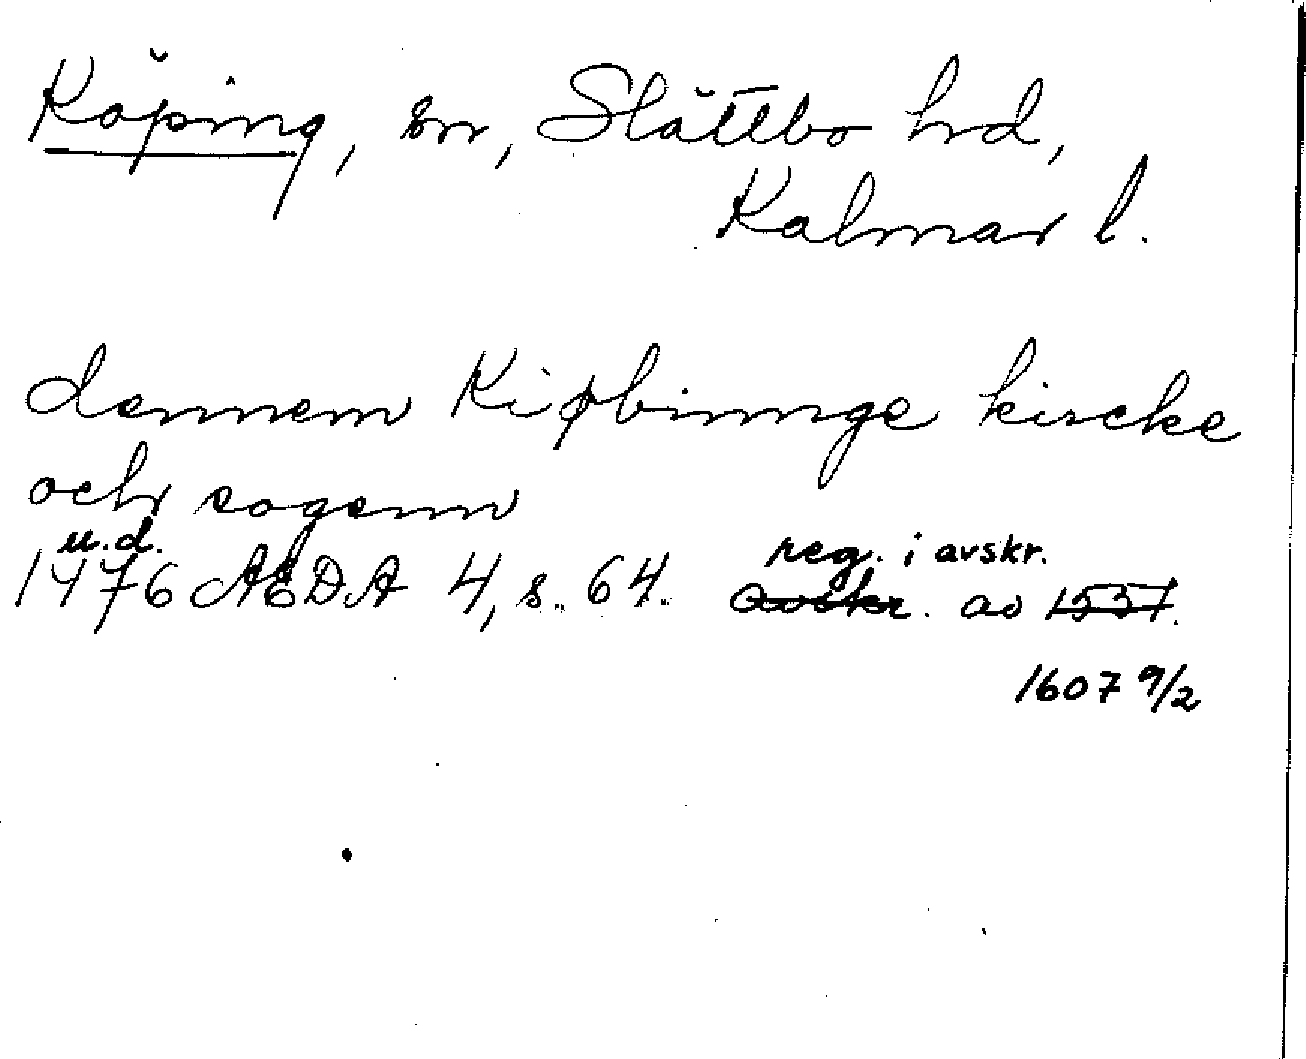 Köping, sn, Slättbo hrd,
Kalmar l.
dennem Kiøbinnge kircke
och sogenn
u.d.
1476 ÆDA 4, s. 64. reg. i avskr.
avskr. av 1557.
1607 9/2